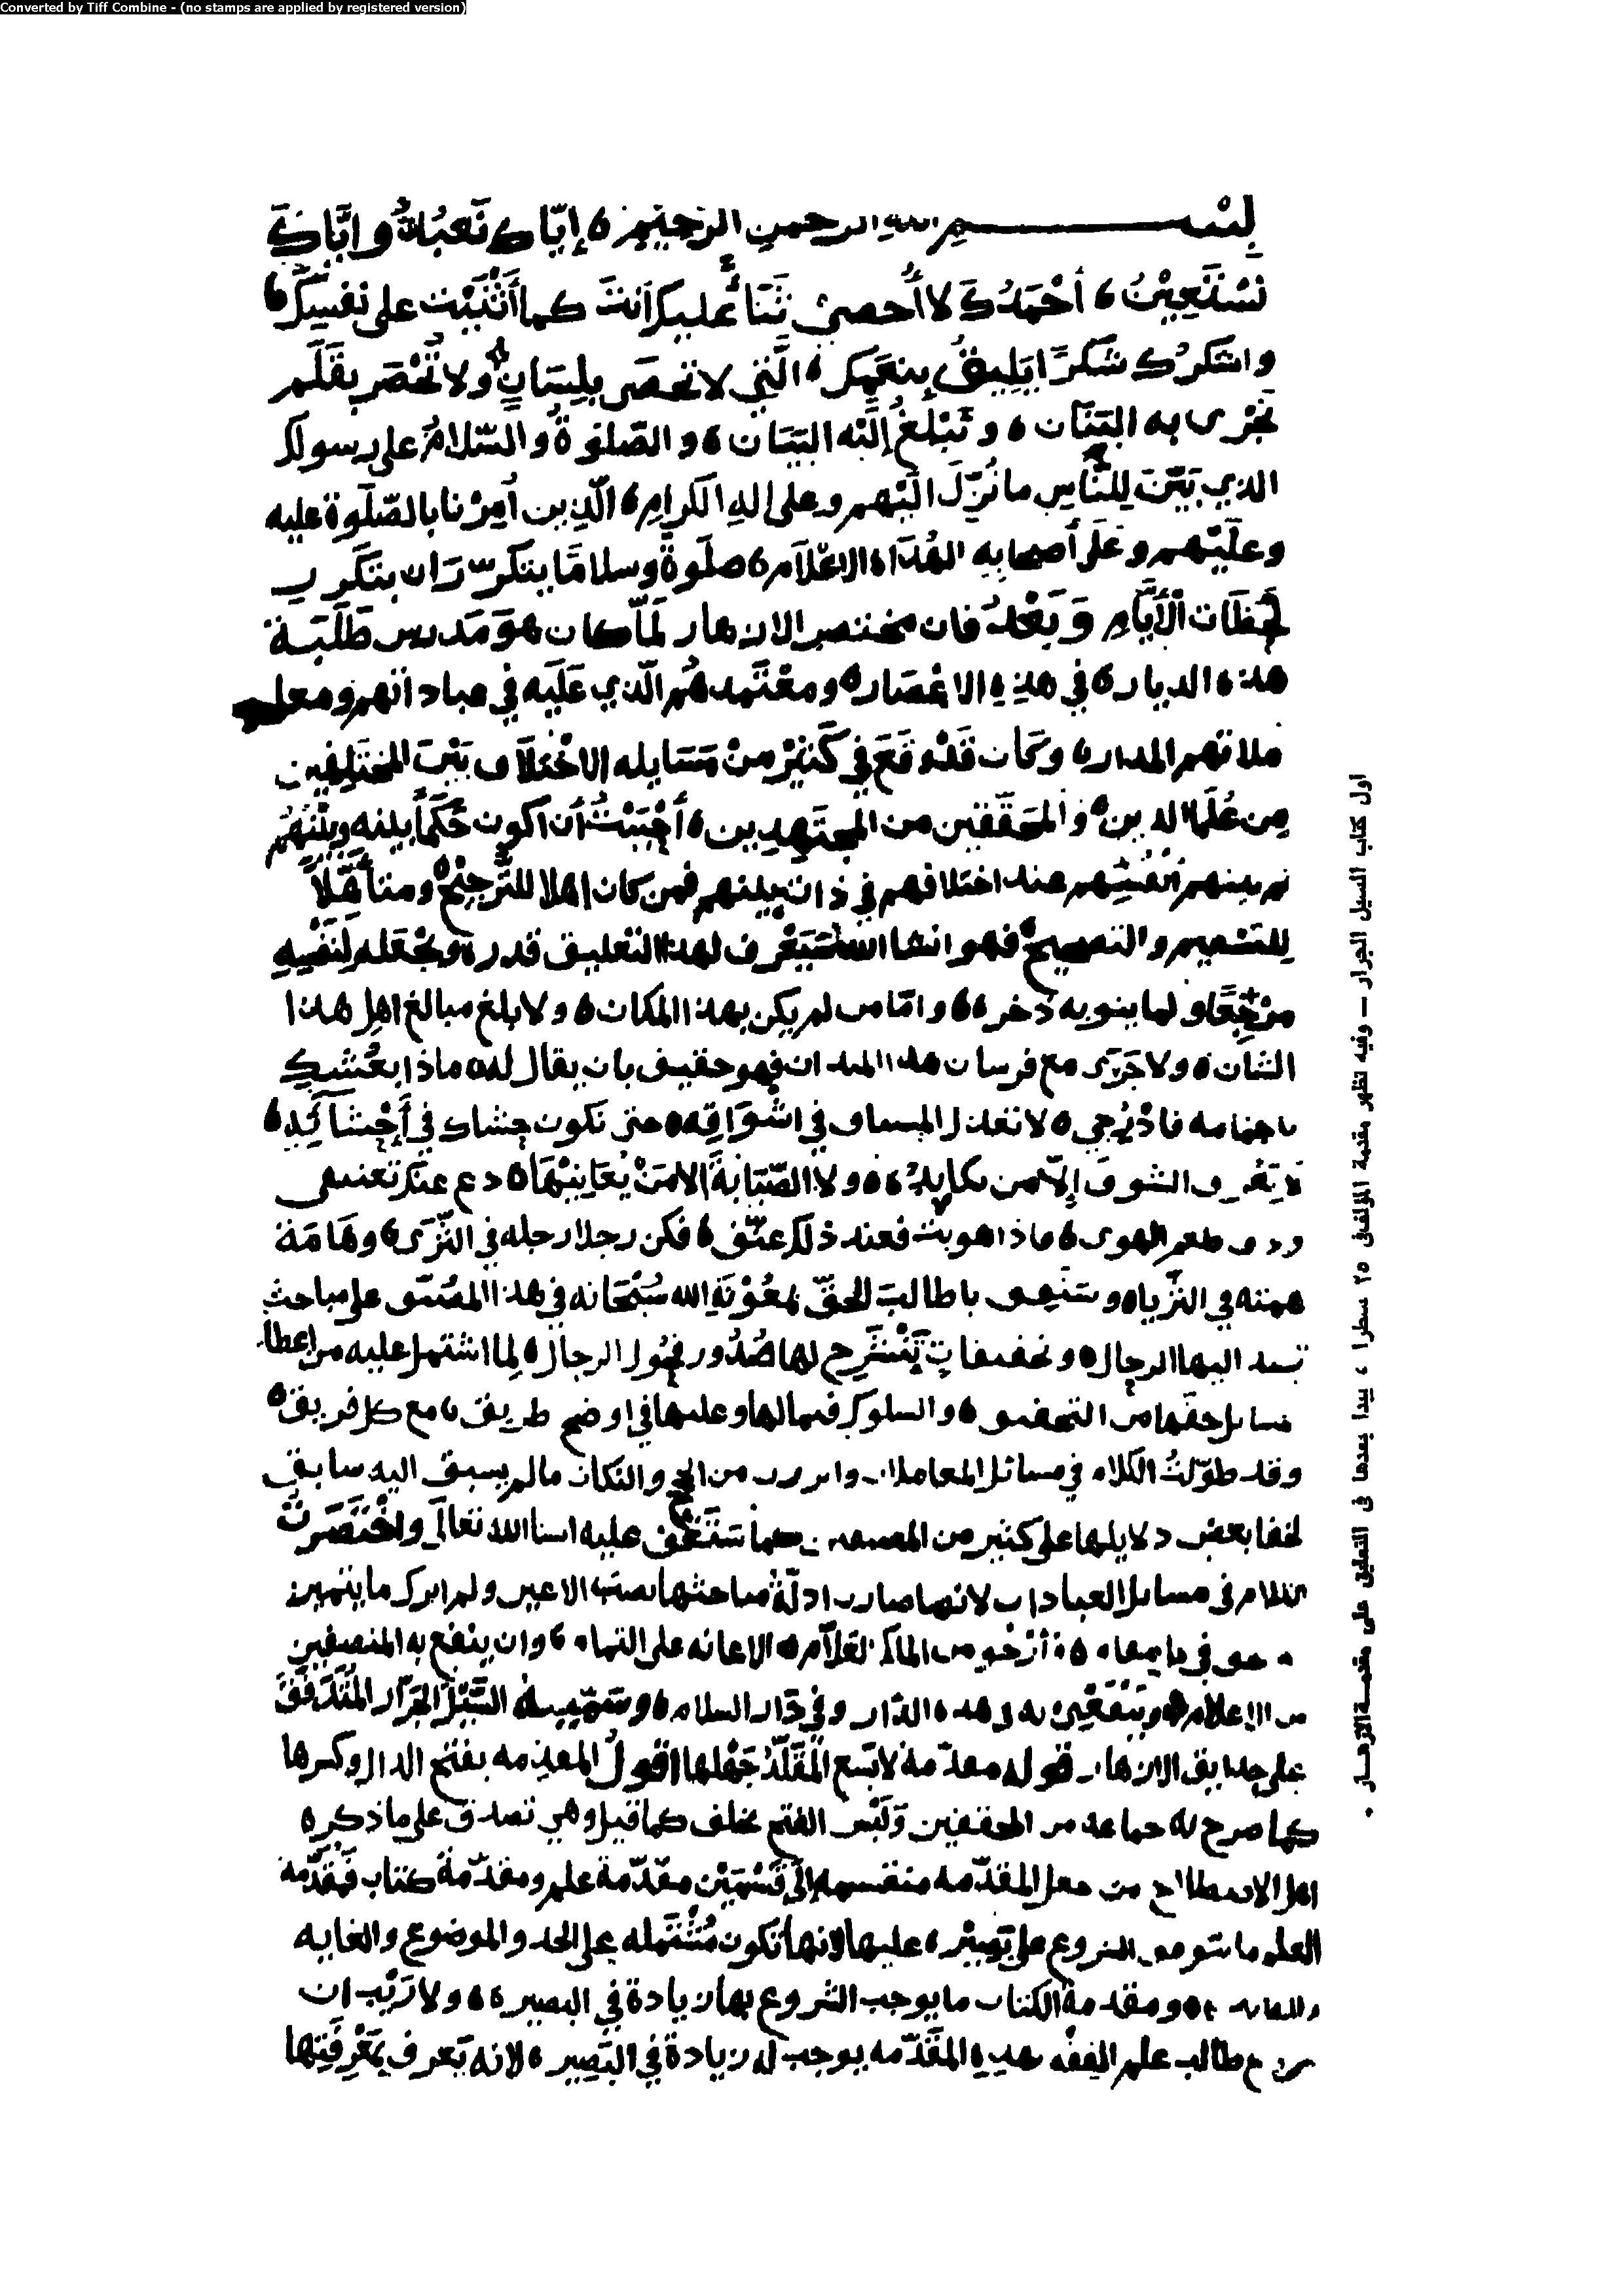 Converted by Tiff Combine - (no stamps are applied by registered version)
بسم الله الرحمن الرحيم إيّاك نَعبُد وإيّاكَ
نَسْتَعِيْنُ أحْمَدُكَ لا أُحصي ثَنَاءً عليك أنتَ كما أثْنَيْتَ على نفسِكَ
واشكرُك شكرًا يَلِيقُ بنعمِك الَّتي لا تحصَى بلِسَانٍ ولا تُحْصَر بقَلَم
يَجْرى به البَنَان وتَبْلغُ إليْه التبيان والصّلوةُ والسّلامُ على رسولك
الذي بَيّنَ لِلنَّاسِ ما نُزِّلَ اليْهم وعلى الهِ الكرامِ الَّذِين أُمِرْنا بالصّلَوة عليه
وعليْهم وعَلَى أصحابِهِ الهُدَاة الاعْلَام صلَوةً وسلامًا يتكرّران بتكرر
لَحظَات الأيَّامِ وَبَعْدُ فان مختصر الازهار لَمّا كان هو مَدرس طَلَبَة
هذه الديار في هذِهِ الاعْصَار ومعْتَمدهُم الّذي عَلَيه في عباداتهم ومعا
ملاتهم المدار وكان قَدْ وقَعَ في كَثِيْر مِنْ مَسَايله الاخْتلَاف بَيْنَ المختلِفِين
مِن عُلَمَاء الدين والمحَقِّقين من المجتَهِدِين أحْبَبْتُ أن اكون حَكَمًا بينه وبيْنَهُم
ثم بينهم أنفُسِهم عند اختلافهم في ذات بينهم فمن كان اهلا للتَّرجِيْحِ ومتأهّلًا
للتقسيم والتصحيح فهو انشا الله سَيَعْرِف لهذا التعليق قدره ويجْعَله لِنَفْسِهِ
مرْجِعًا ولما ينوبه ذخره وامّا من لم يكن بهذا المكان ولا بلغ مبالغ اهل هذا
الشان ولا جَرَى مع فرسان هذا الميدان فهو حقيق بان يقال له ماذا بعُشِّكِ
يا حمامه فادْرُجي لا تعذل المشتاق في اشْوَاقِه حتى تكون حشاك في أحْشَائِهِ
لا يَعْرِف الشوق إلّا من يكابِدُه ولا الصّبَابةَ الا مَنْ يُعَانِيْهَا دع عنك تعنيفى
وذق طعم الهوى فاذا هويت فعند ذلك عنّف فكن رجلا رجله في الثّرَى وهَامَة
همته في الثريا وستقف يا طالبَ الحقّ بمعُوْنَةِ الله سُبْحَانه في هذا المصنّف على مباحث
تشد اليها الرحال وتحقيقات تَنْشَرِح لها صُدُور فحُول الرجال لِما اشتمل عليه من اعطا
المسائل حقّها من التحقيق والسلوك فيما لها وعليها في اوضح طريق مع كل فريق
وقد طوّلتُ الكلام في مسائل المعاملات وابرزت من الحجج والنكات ما لم يسبق اليه سابق
لخفا بعض دلايلها على كثير من المصنفين كما ستَقف عليه انشا الله تعَالَى واخْتَصَرتُ
الكلام في مسائل العبادات لانها صارت ادلّةُ مباحثها نصب الاعين ولم اترك ما يتعين
من الاعلام وينْفَعَنِيْ به في هذه الدّار وفي دَار السلام وسَمّيته السَّيْلَ الجرَّار المُتَدَفِّقَ
على حدايق الازهار قوله مقدّمة لا يَسَع المُقَلِّدَ جَهْلها اقول المقدمه بفتح الدال وكسرها
كما صرح به جماعه من المحققين وَلَيْس الفتح بخلف كما قيل وهي تصدق على ما ذكره
اهل الاصطلاح من جعل المقدّمه منقسمه إلى قسْمَيْن مقدّمة علم ومقدّمة كتاب فمقدِّمة
العلم ما يتوقف الشروع على بَصِيْره عليها لانها تكون مُشْتَمله على الحد والموضوع والغايه
ومقدمة الكتاب ما يوجب الشروع بها زيادة في البصيره ولا رَيْب ان
شروع طالب علم الفقه بهذِهِ المقَدّمه يوجب له زيادة في البَصِيره لانه يَعرف بمَعْرِفَتِها
اول كتاب السيل الجرار – وفيه تظهر مقدمة المؤلف في ٢٥ سطرا ، يبدا بعدها فى التعليق على مقدمة الازهار .